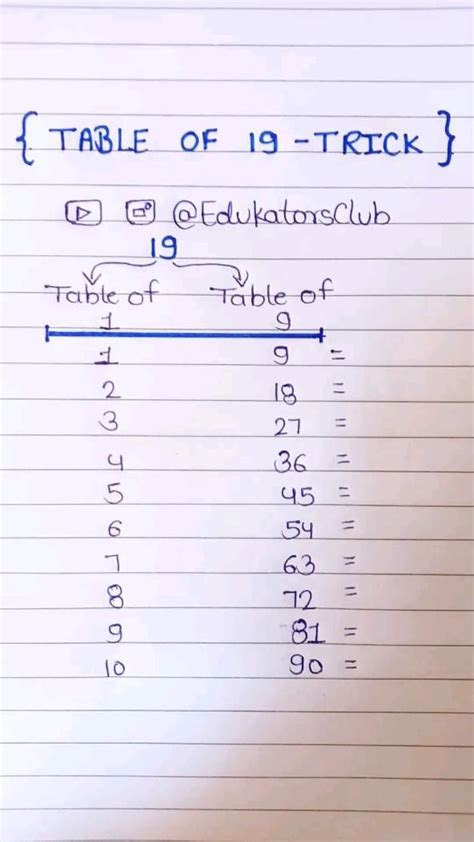 { TABLE OF 19 - TRICK }
@EdukatorsClub
19
Table of Table of
1 9
1 9 =
2 18 =
3 27 =
4 36 =
5 45 =
6 54 =
7 63 =
8 72 =
9 81 =
10 90 =